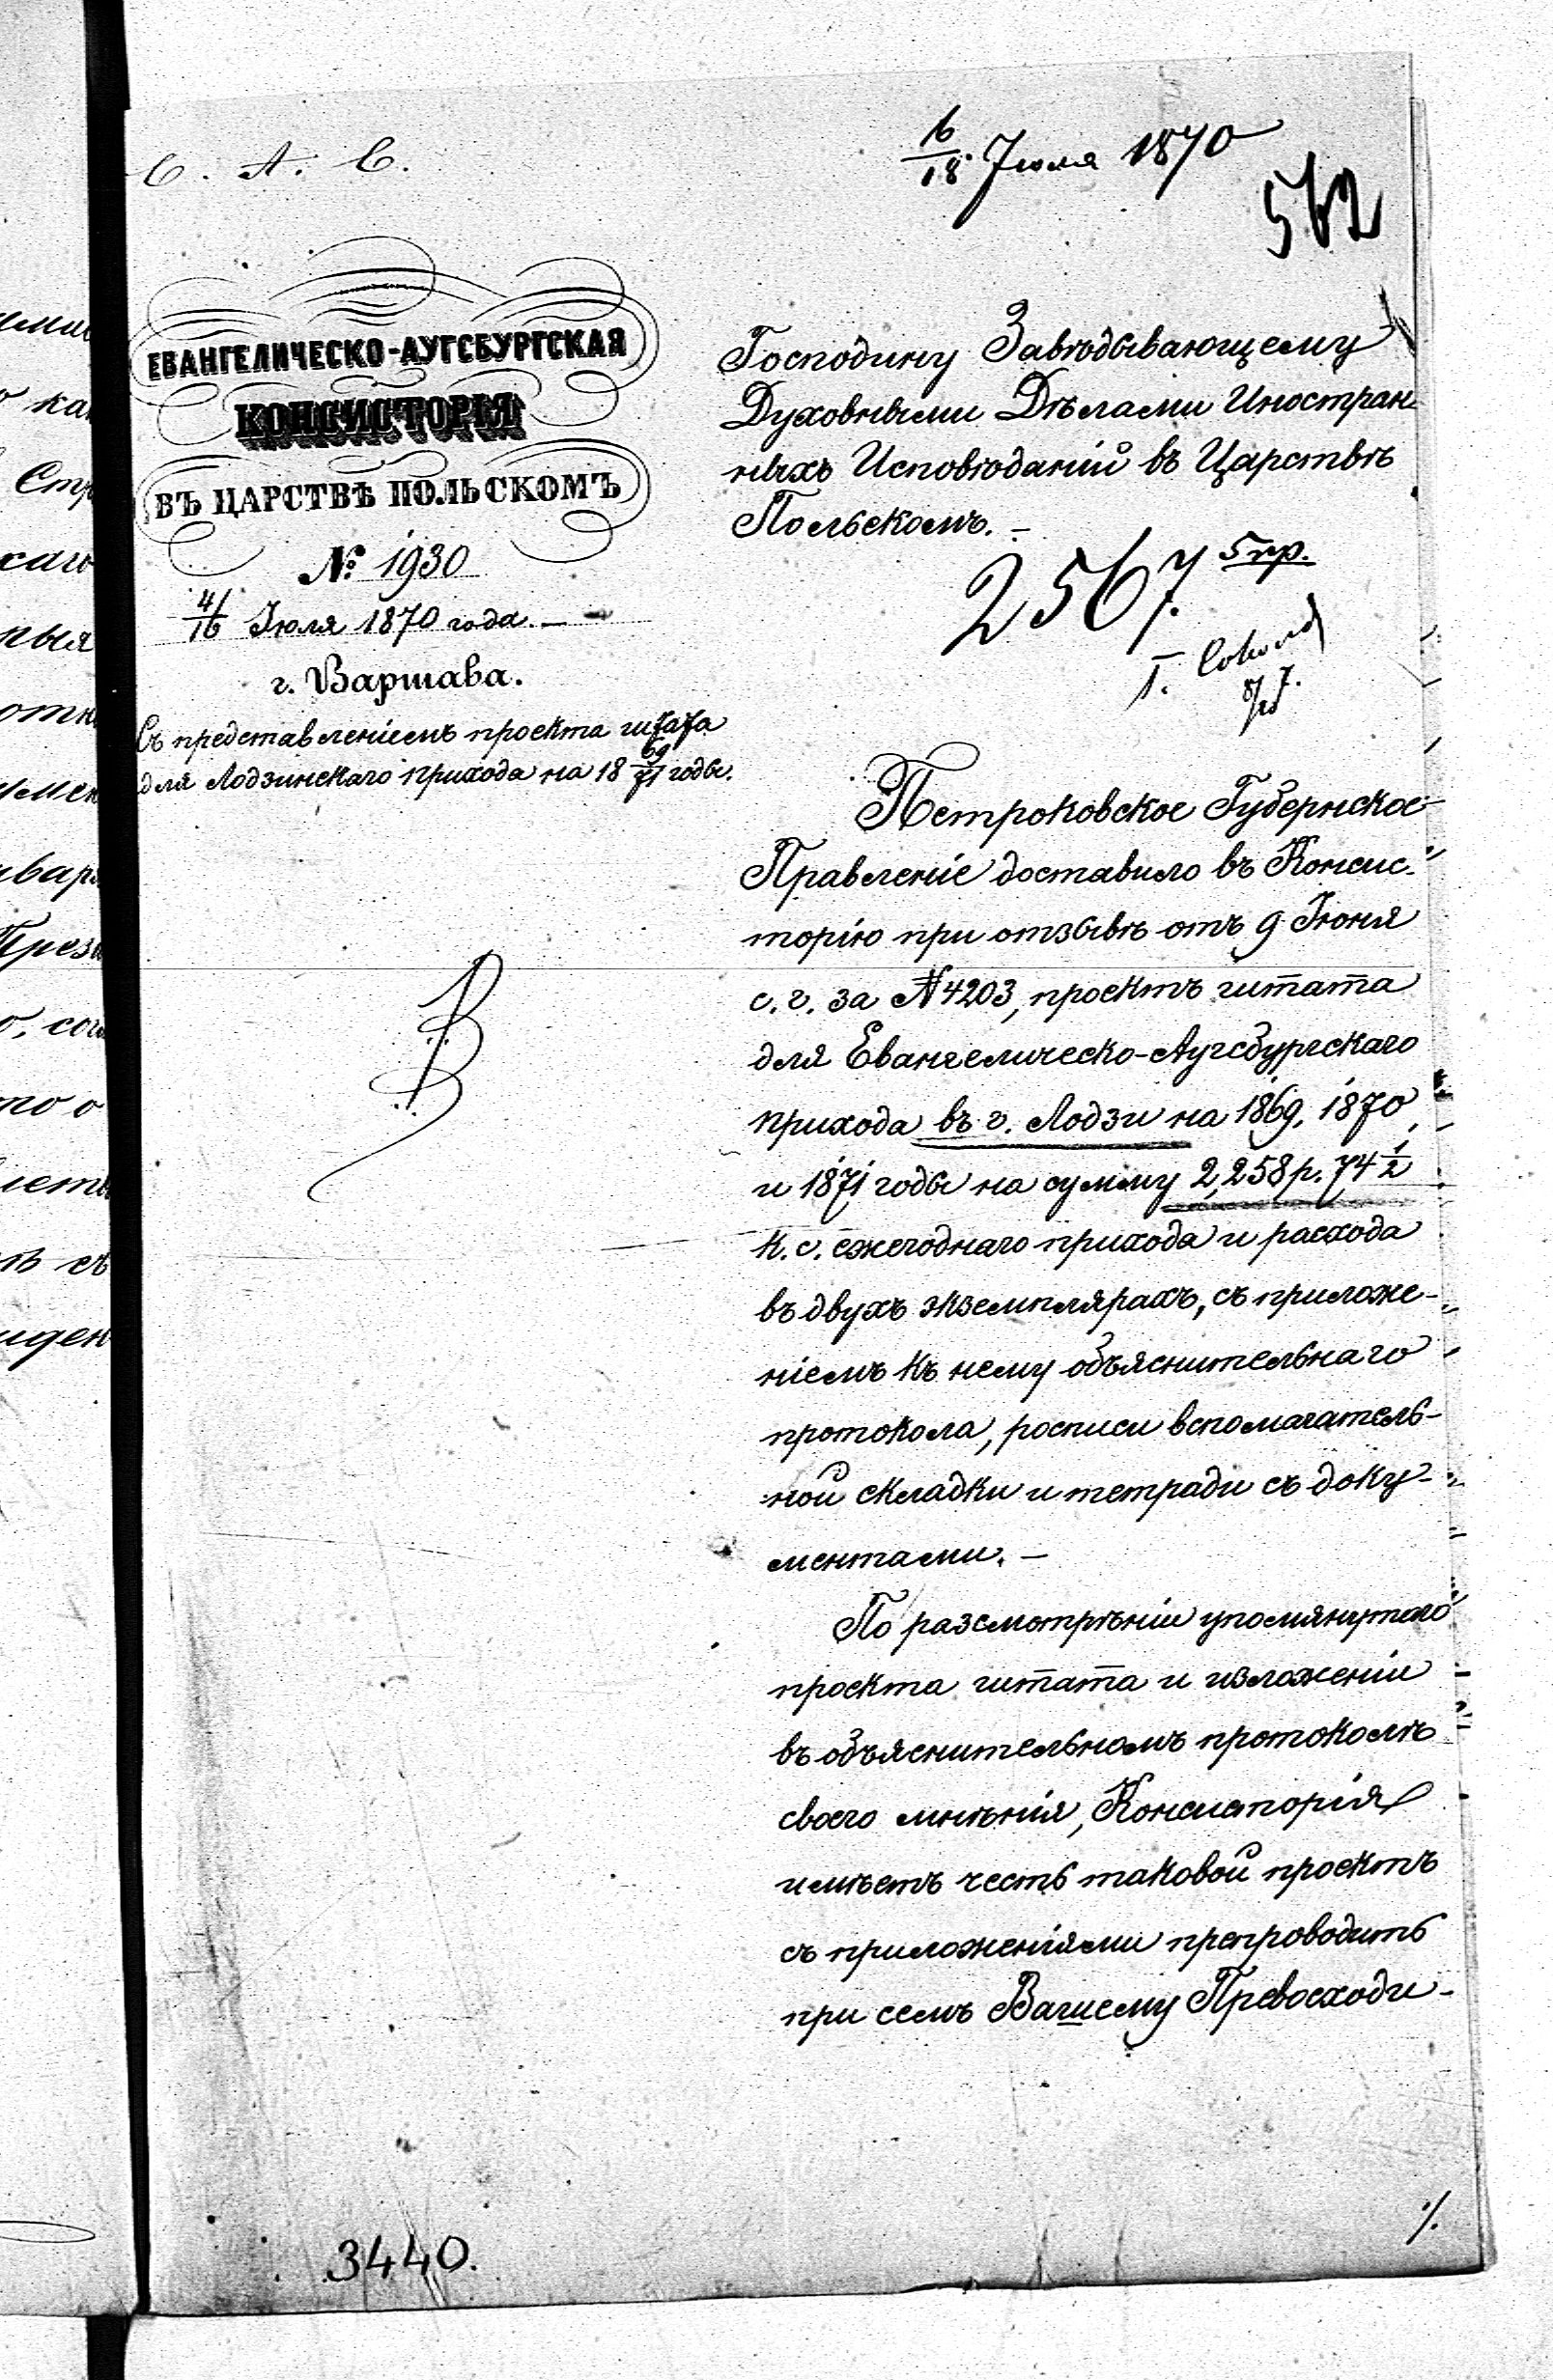 С. А. С.
16/18 Іюля 1870
562
ЕВАНГЕЛИЧЕСКО-АУГСБУРГСКАЯ
КОНСИСТОРІЯ
ВЪ ЦАРСТВѢ ПОЛЬСКОМЪ
№ 1930
4/16 Іюля 1870 года. —
г. Варшава.
Съ представленіемъ проекта штата
для Лодзинскаго прихода на 18 69/71 годы.
Господину Завѣдывающему
Духовными Дѣлами Иностран-
ныхъ Исповѣданій въ Царствѣ
Польскомъ. —
2567.
Петроковское Губернское
Правленіе доставило въ Консис-
торію при отзывѣ отъ 9 Іюня
с. г. за № 4203, проектъ штата
для Евангелическо-Аугсбургскаго
прихода въ г. Лодзи на 1869, 1870
и 1871 годы на сумму 2,258 р. 74 1/2
к. с. ежегоднаго прихода и расхода
въ двухъ экземплярахъ, съ приложе-
ніемъ къ нему объяснительнаго
протокола, росписи вспомагатель-
ной складки и тетради съ доку-
ментами. —
По разсмотрѣніи упомянутаго
проекта штата и изложеніи
въ объяснительномъ протоколѣ
своего мнѣнія, Консисторія
имѣетъ честь таковой проектъ
съ приложеніями препроводить
при семъ Вашему Превосходи-
./.
3440.